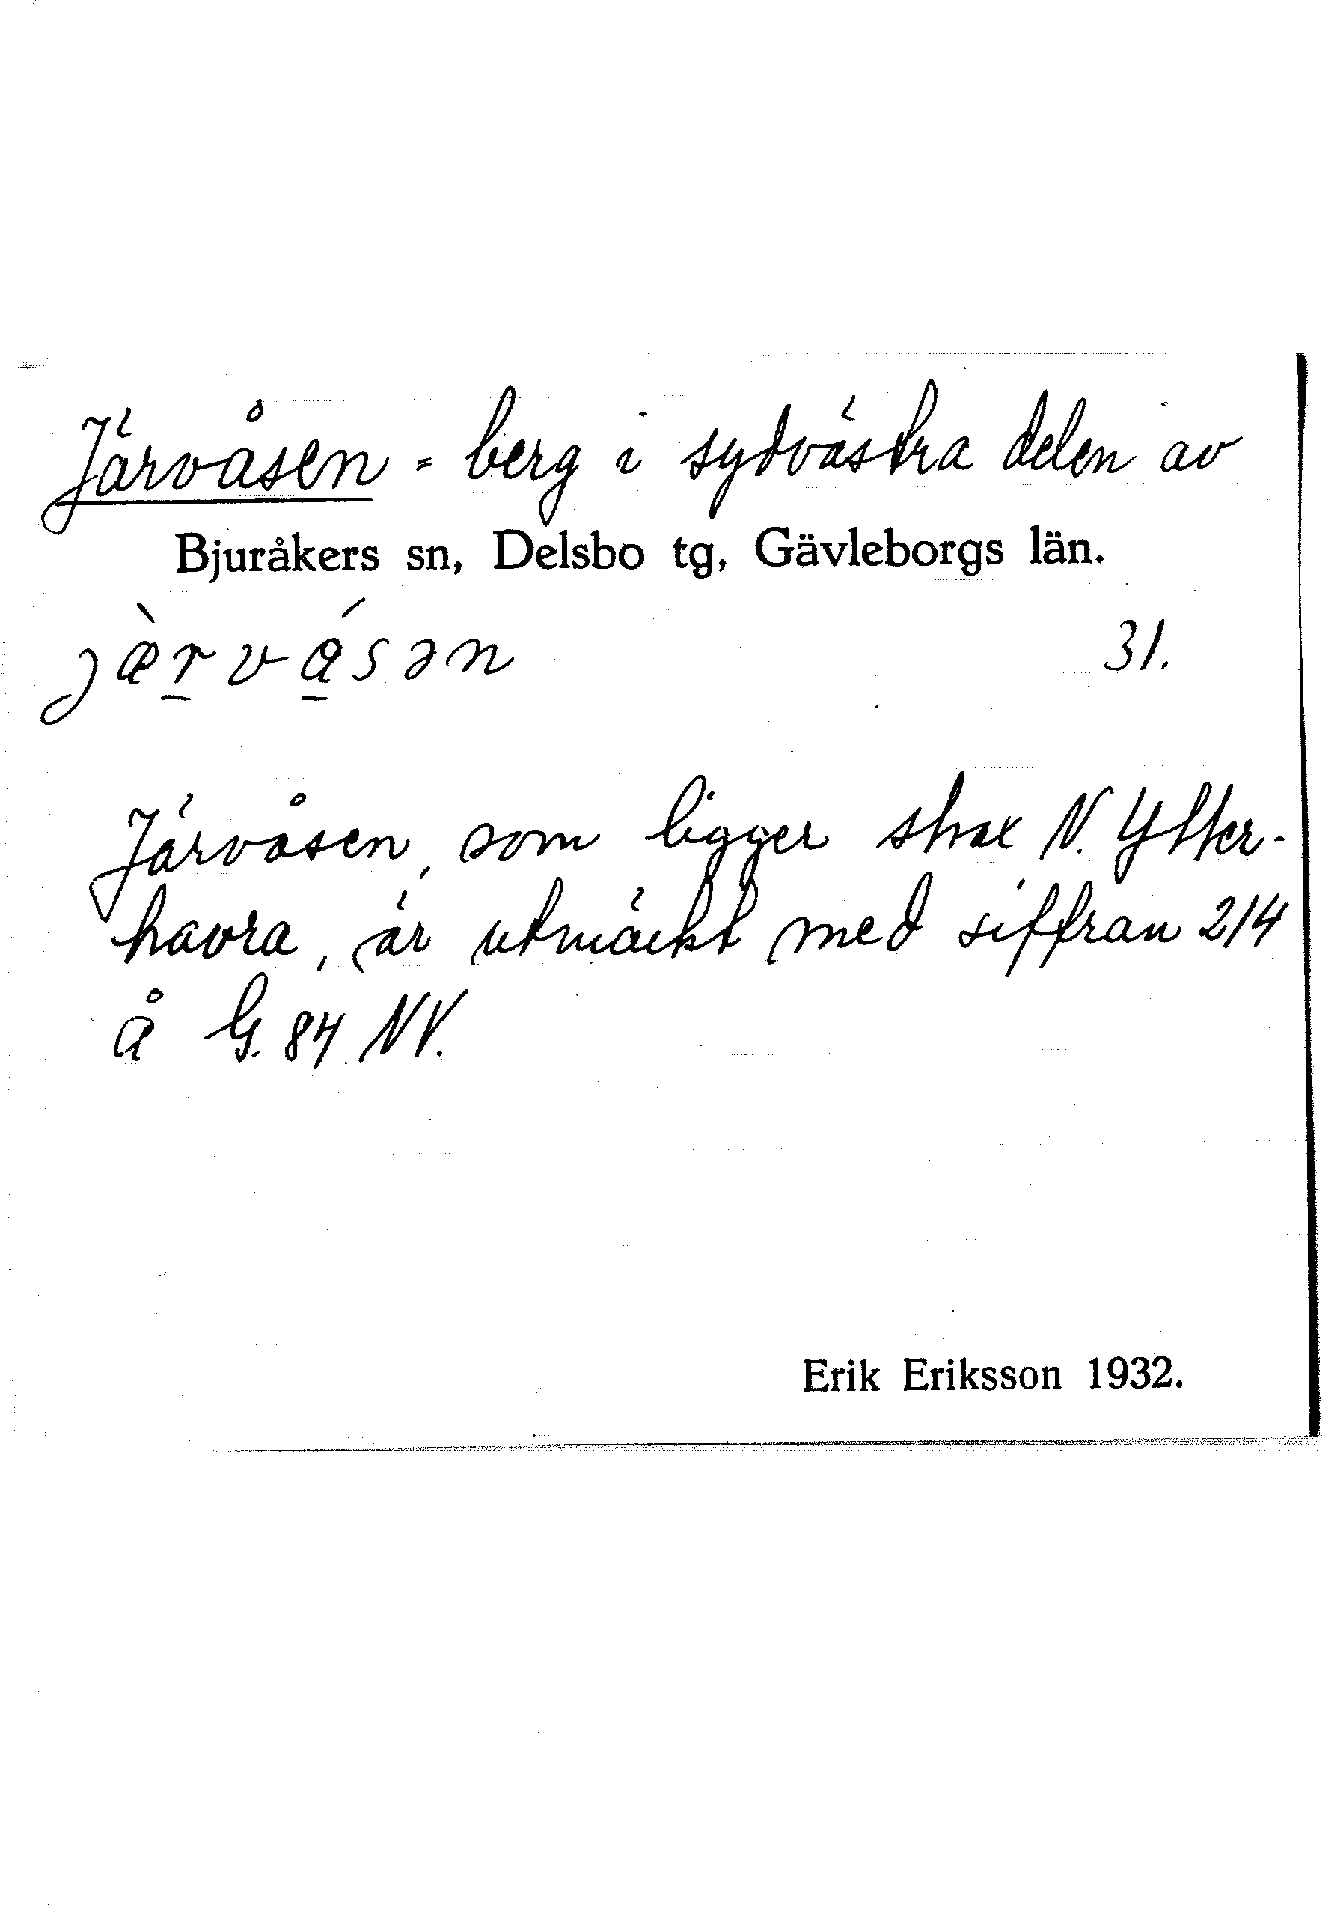 Järvåsen = berg i sydvästra delen av
Bjuråkers sn, Delsbo tg, Gävleborgs län.
jæ̀r̲vá̲sən 31.
Järvåsen, som ligger strax N. Ytter-
havra, är utmäckt med siffran 214
å G. 84 NV.
Erik Eriksson 1932.